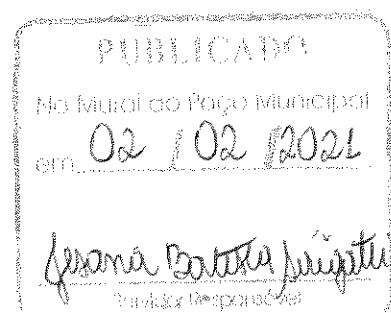 PUBLICADO
No Mural do Paço Municipal
em 02 / 02 / 2021
Batista
Servidor Responsável